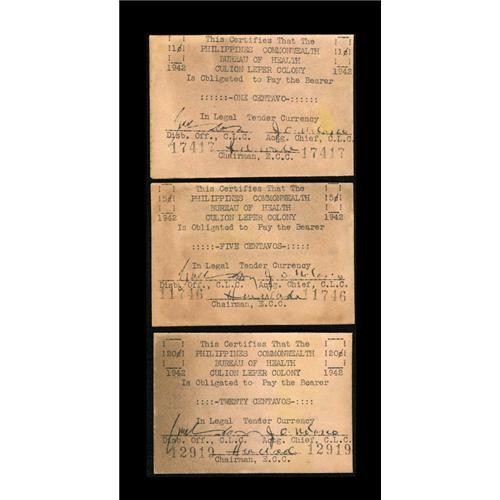 This Certifies That The
|1¢| PHILIPPINES COMMONWEALTH |1¢|
BUREAU OF HEALTH
1942 CULION LEPER COLONY 1942
Is Obligated to Pay the Bearer
::::::-ONE CENTAVO-::::::
In Legal Tender Currency
Disb. Off., C.L.C. Actg. Chief, C.L.C.
17417 17417
Chairman, E.C.C.
This Certifies That The
|5¢| PHILIPPINES COMMONWEALTH |5¢|
BUREAU OF HEALTH
1942 CULION LEPER COLONY 1942
Is Obligated to Pay the Bearer
:::::-FIVE CENTAVOS-:::::
In Legal Tender Currency
Disb. Off., C.L.C. Actg. Chief, C.L.C.
11746 11746
Chairman, E.C.C.
This Certifies That The
|20¢| PHILIPPINES COMMONWEALTH |20¢|
BUREAU OF HEALTH
1942 CULION LEPER COLONY 1942
Is Obligated to Pay the Bearer
::::-TWENTY CENTAVOS-::::
In Legal Tender Currency
Disb. Off., C.L.C. Actg. Chief, C.L.C.
12919 12919
Chairman, E.C.C.